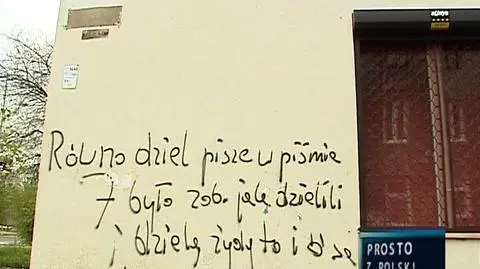 Równo dziel pisze w piśmie
7 było zob. jak dzielili
i dzielą żydy to i
PROSTO
Z POLSKI